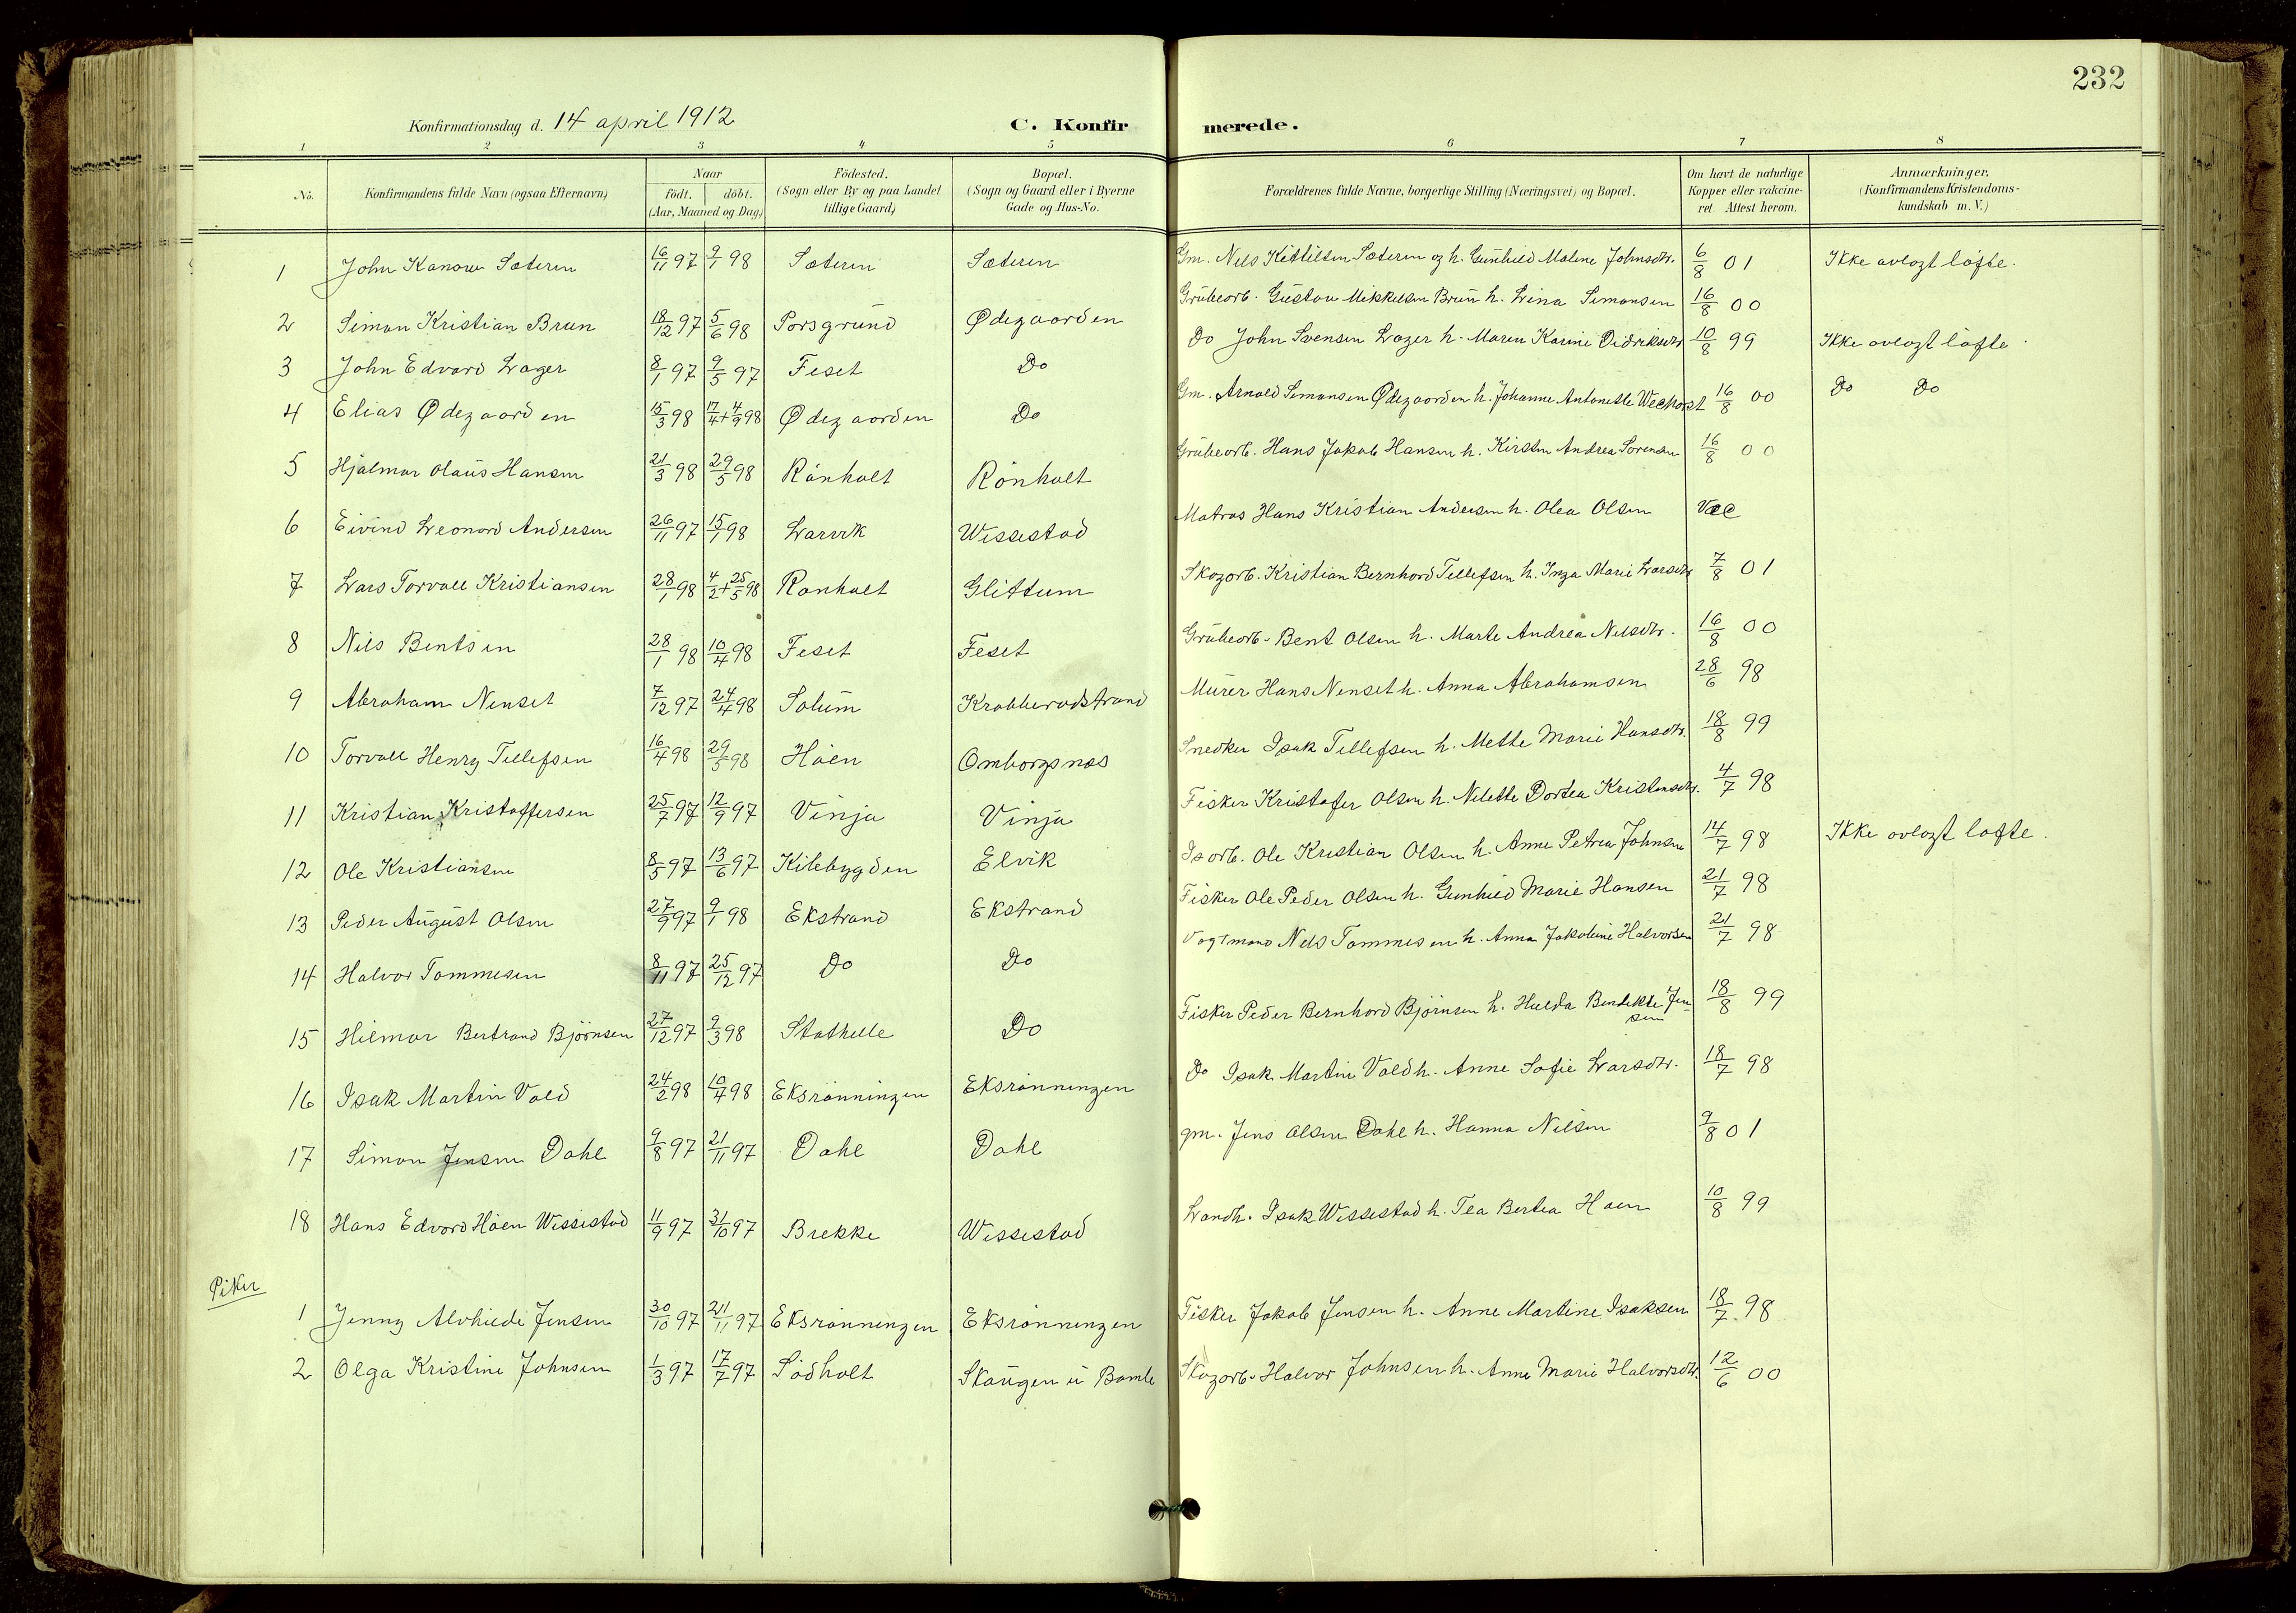 232
Konfirmationsdag d. 14 april 1912
C. Konfirmerede.
1 2 3 4 5 6 7 8
No.
Konfirmandens fulde Navn (ogsaa Efternavn)
Naar
födt. döbt.
(Aar, Maaned og Dag)
Födested.
(Sogn eller By og paa Landet
tillige Gaard)
Bopæl.
(Sogn og Gaard eller i Byerne
Gade og Hus-No.
Forældrenes fulde Navne, borgerlige Stilling (Næringsvei) og Bopæl.
Om havt de naturlige
Kopper eller vakcine-
ret. Attest herom.
Anmærkninger,
(Konfirmandens Kristendoms-
kundskab m. V.)
1 John Kanow Sæteren 16/11 97 9/1 98 Sæteren Sæteren Gm. Nils Kittilsen Sæteren og h. Gunhild Maline Johnsdtr. 6/8 01 Ikke avlagt løfte.
2 Simon Kristian Brun 18/12 97 5/6 98 Porsgrund Ødegaarden Grubearb. Gustav Mikkelsen Brun h. Lina Simonsen 16/8 00
3 John Edvard Lager 8/1 97 9/5 97 Feset Do Do John Svensen Lager h. Maren Karine Didriksdtr 10/8 99 Ikke avlagt løfte
4 Elias Ødegaarden 15/3 98 17/4 + 4/9 98 Ødegaarden Do Gm. Arnold Simonsen Ødegaarden h. Johanne Antonette 16/8 00 Do Do
5 Hjalmar Olaus Hansen 21/3 98 29/5 98 Rønholt Rønholt Grubearb. Hans Jakob Hansen h. Kirsten Andrea Sørensen 16/8 00
6 Eivind Leonard Andersen 26/11 97 15/1 98 Larvik Wissestad Matros Hans Kristian Andersen h. Olea Olsen Vac
7 Lars Torvall Kristiansen 28/1 98 4/2 + 25/5 98 Rønholt Glittum Skogarb. Kristian Bernhard Tellefsen h. Inga Marie Larsdtr 7/8 01
8 Nils Bentsen 28/1 98 10/4 98 Feset Feset Grubearb. Bent Olsen h. Marte Andrea Nilsdtr. 16/8 00
9 Abraham Nenset 7/12 97 24/4 98 Solum Krabberødstrand Murer Hans Nenset h. Anna Abrahamsen 28/6 98
10 Torvall Henry Tellefsen 16/4 98 29/5 98 Håen Omborgsnes Snedker Isak Tellefsen h. Mette Marie Hansdtr. 18/8 99
11 Kristian Kristoffersen 25/7 97 12/9 97 Vinja Vinja Fisker Kristofer Olsen h. Nilette Dortea Kristensdtr. 4/7 98
12 Ole Kristiansen 8/5 97 13/6 97 Kilebygden Elvik Isarb. Ole Kristian Olsen h. Anne Petrea Johnsen 14/7 98 Ikke avlagt løfte.
13 Peder August Olsen 27/9 97 9/1 98 Ekstrand Ekstrand Fisker Ole Peder Olsen h. Gunhild Marie Hansen 21/7 98
14 Halvor Tommesen 8/11 97 25/12 97 Do Do Vogtmand Nils Tommesen h. Anna Jakobine Halvorsen 21/7 98
15 Hilmar Bertrand Björnsen 27/12 97 9/3 98 Stathelle Do Fisker Peder Bernhard Björnsen h. Hulda Bendikte Jen-
sen 18/8 99
16 Isak Martin Vold 24/2 98 10/4 98 Eksrønningen Eksrønningen Do Isak Martin Vold h. Anne Sofie Larsdtr. 18/7 98
17 Simon Jensen Dahl 9/8 97 21/11 97 Dahl Dahl gm. Jens Olsen Dahl h. Hanna Nilsen 9/8 01
18 Hans Edvard Håen Wissestad 11/9 97 31/10 97 Brekke Wissestad Landh. Isak Wissestad h. Tea Bertea Haen 10/8 99
Piker
1 Jenny Alvhilde Jensen 30/10 97 21/11 97 Eksrønningen Eksrønningen Fisker Jakob Jensen h. Anne Martine Isaksen 18/7 98
2 Olga Kristine Johnsen 1/3 97 17/7 97 Södholt Skaugen i Bamle Skogarb. Halvor Johnsen h. Anne Marie Halvorsdtr. 12/6 00